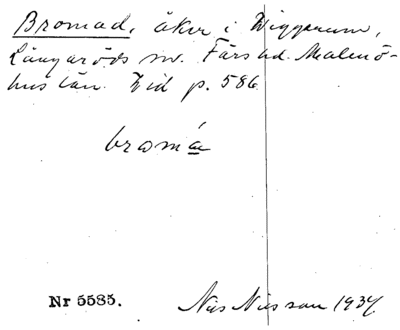 Bromad, åker i Wiggarum,
Långaröds sn. Färs hd. Malmö-
hus län. Vid p. 586
bromá
Nr 5585.
Nils Nilsson 1934.